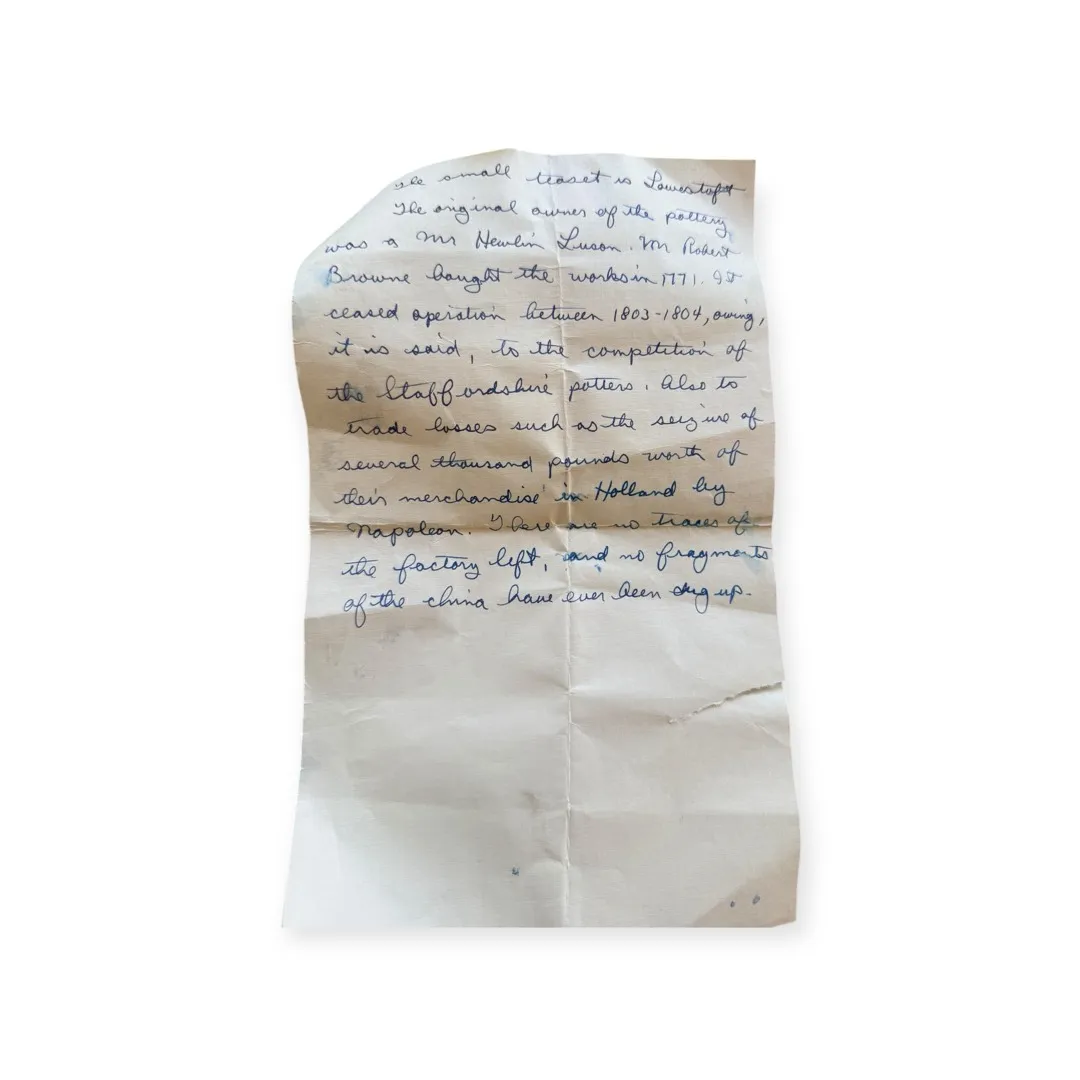 The small teaset is Lowestoft
The original owner of the pottery
was a Mr Hewlin Luson. Mr Robert
Browne bought the works in 1771. It
ceased operation between 1803-1804, owing,
it is said, to the competition of
the Staffordshire potters. Also to
trade losses such as the seizure of
several thousand pounds worth of
their merchandise in Holland by
Napoleon. There are no traces of
the factory left, and no fragments
of the china have ever been dug up.